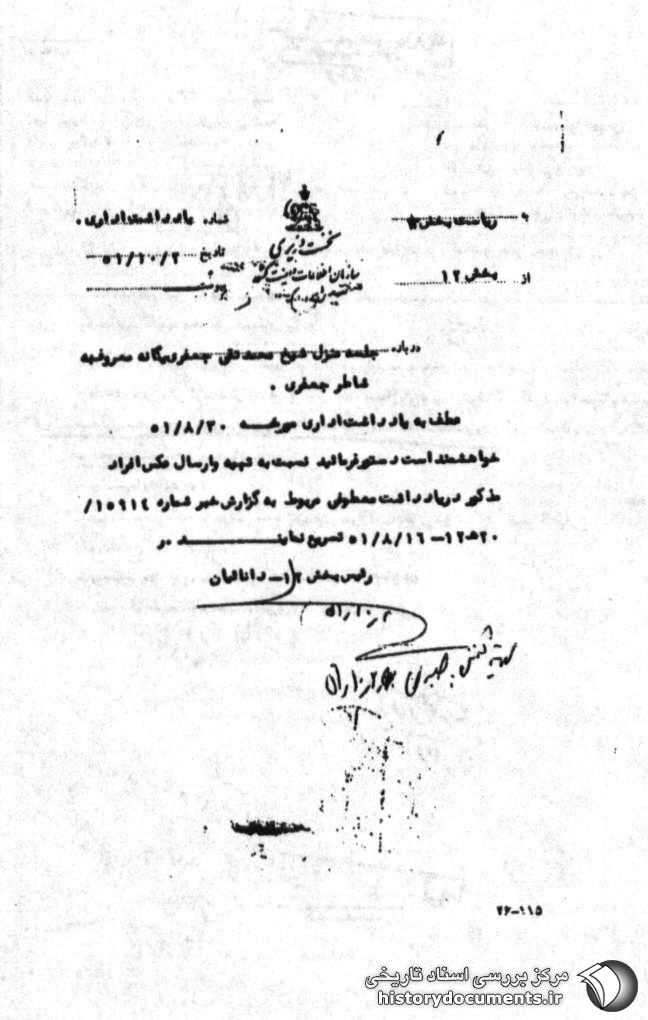 به ریاست بخش
شماره یادداشت اداری .
نخست وزیری
سازمان اطلاعات و امنیت کشور
تاریخ ۵۱/۱۰/۲
از بخش ۱۲
پیوست
درباره جلسه منزل شیخ محمد تقی جعفری یگانه معروف به
شاطر جعفری .
عطف به یادداشت اداری مورخه ۵۱/۸/۳۰
خواهشمند است دستور فرمائید نسبت به تهیه و ارسال عکس افراد
مذکور در یادداشت معطوفی مربوط به گزارش خبر شماره ۱۵۹۱۴/
۲۰ﻫ۱۲ – ۵۱/۸/۱۶ تسریع نمایند
رئیس بخش ۱۲ – دانائیان
۲ ر ۱۰ ر ۵۱
۲۶–۱۱۵
مرکز بررسی اسناد تاریخی
historydocuments.ir